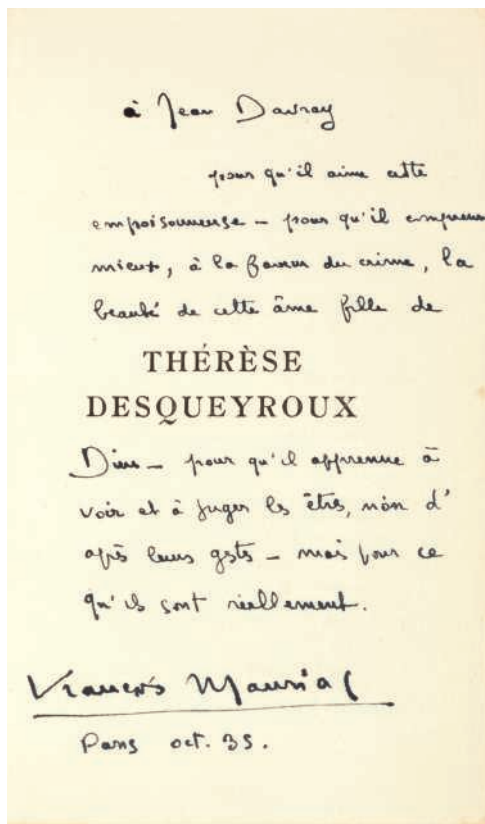 à Jean Davray
pour qu'il aime cette
empoisonneuse — pour qu'il comprenne
mieux, à la faveur du crime, la
beauté de cette âme fille de
THÉRÈSE
DESQUEYROUX
Dieu — pour qu'il apprenne à
voir et à juger les êtres, non d'
après leurs gestes — mais pour ce
qu'ils sont réellement.
François Mauriac
Paris oct. 35.